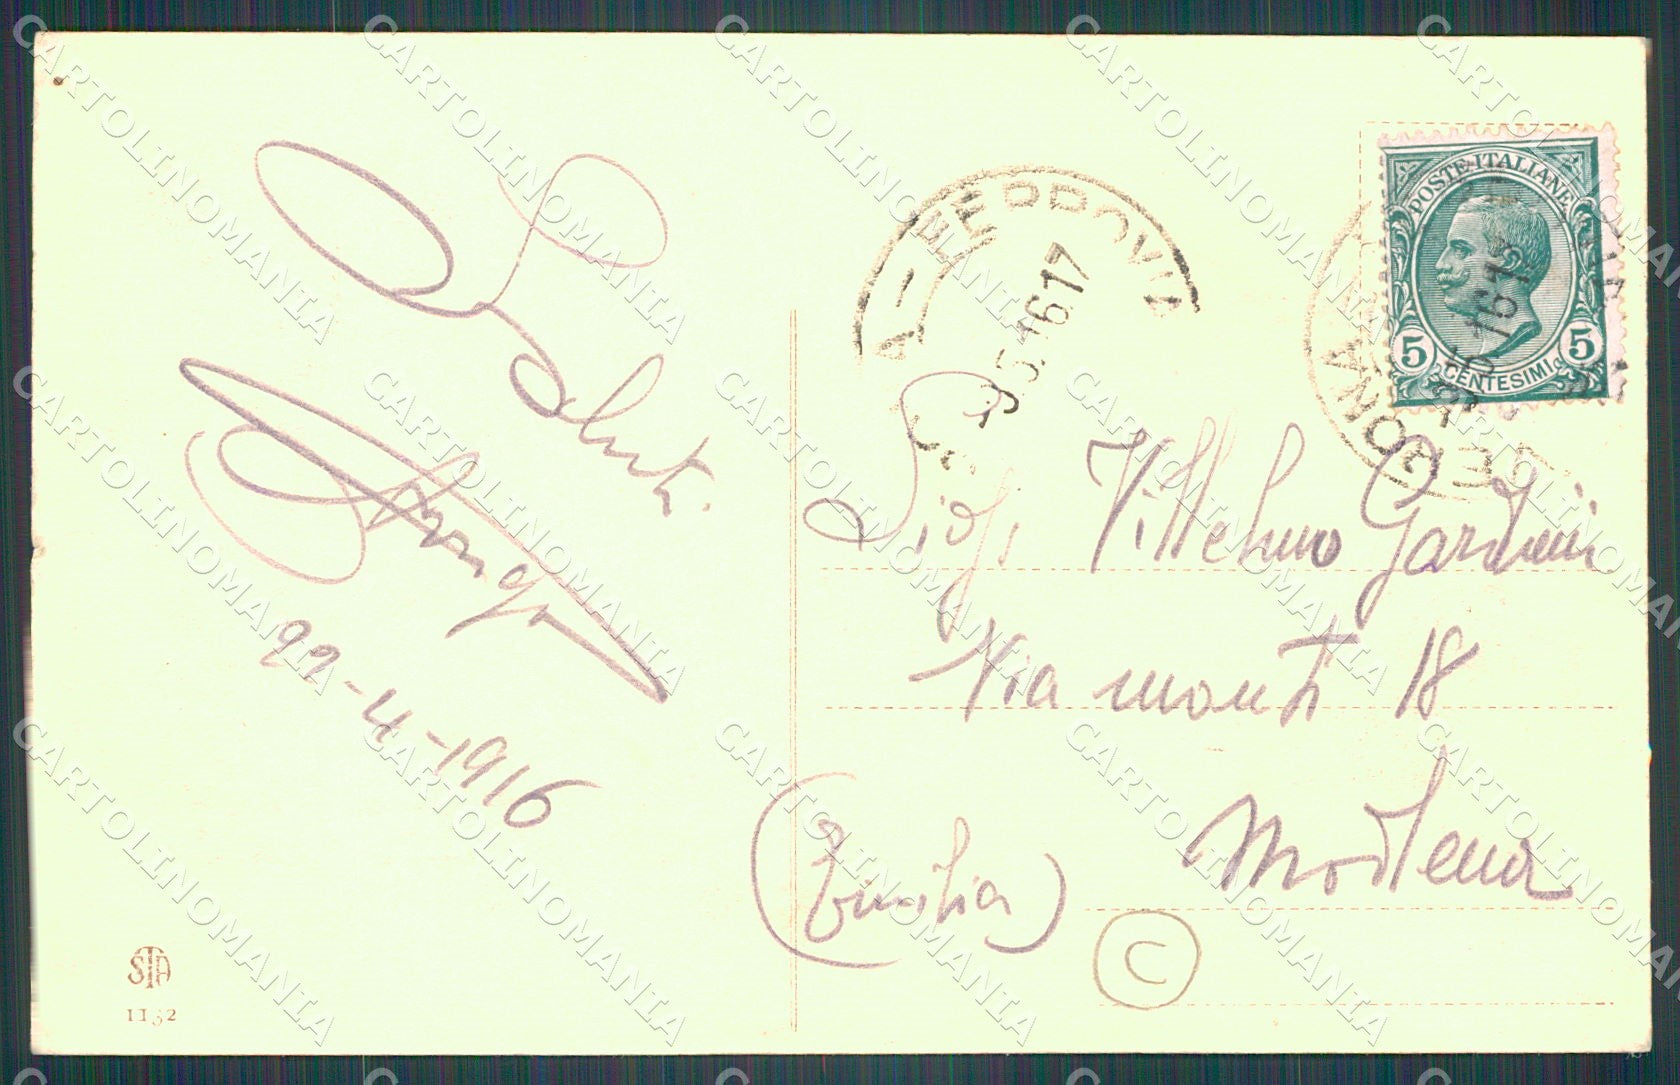 Saluti.
22-4-1916
STA
1152
A - FERROVIA
16 17
POSTE ITALIANE
5 CENTESIMI 5
VERONA
16 17
Sig. Vittelmo Gardini
Via monti 18
Modena
(Emilia)
C
CARTOLINOMANIA